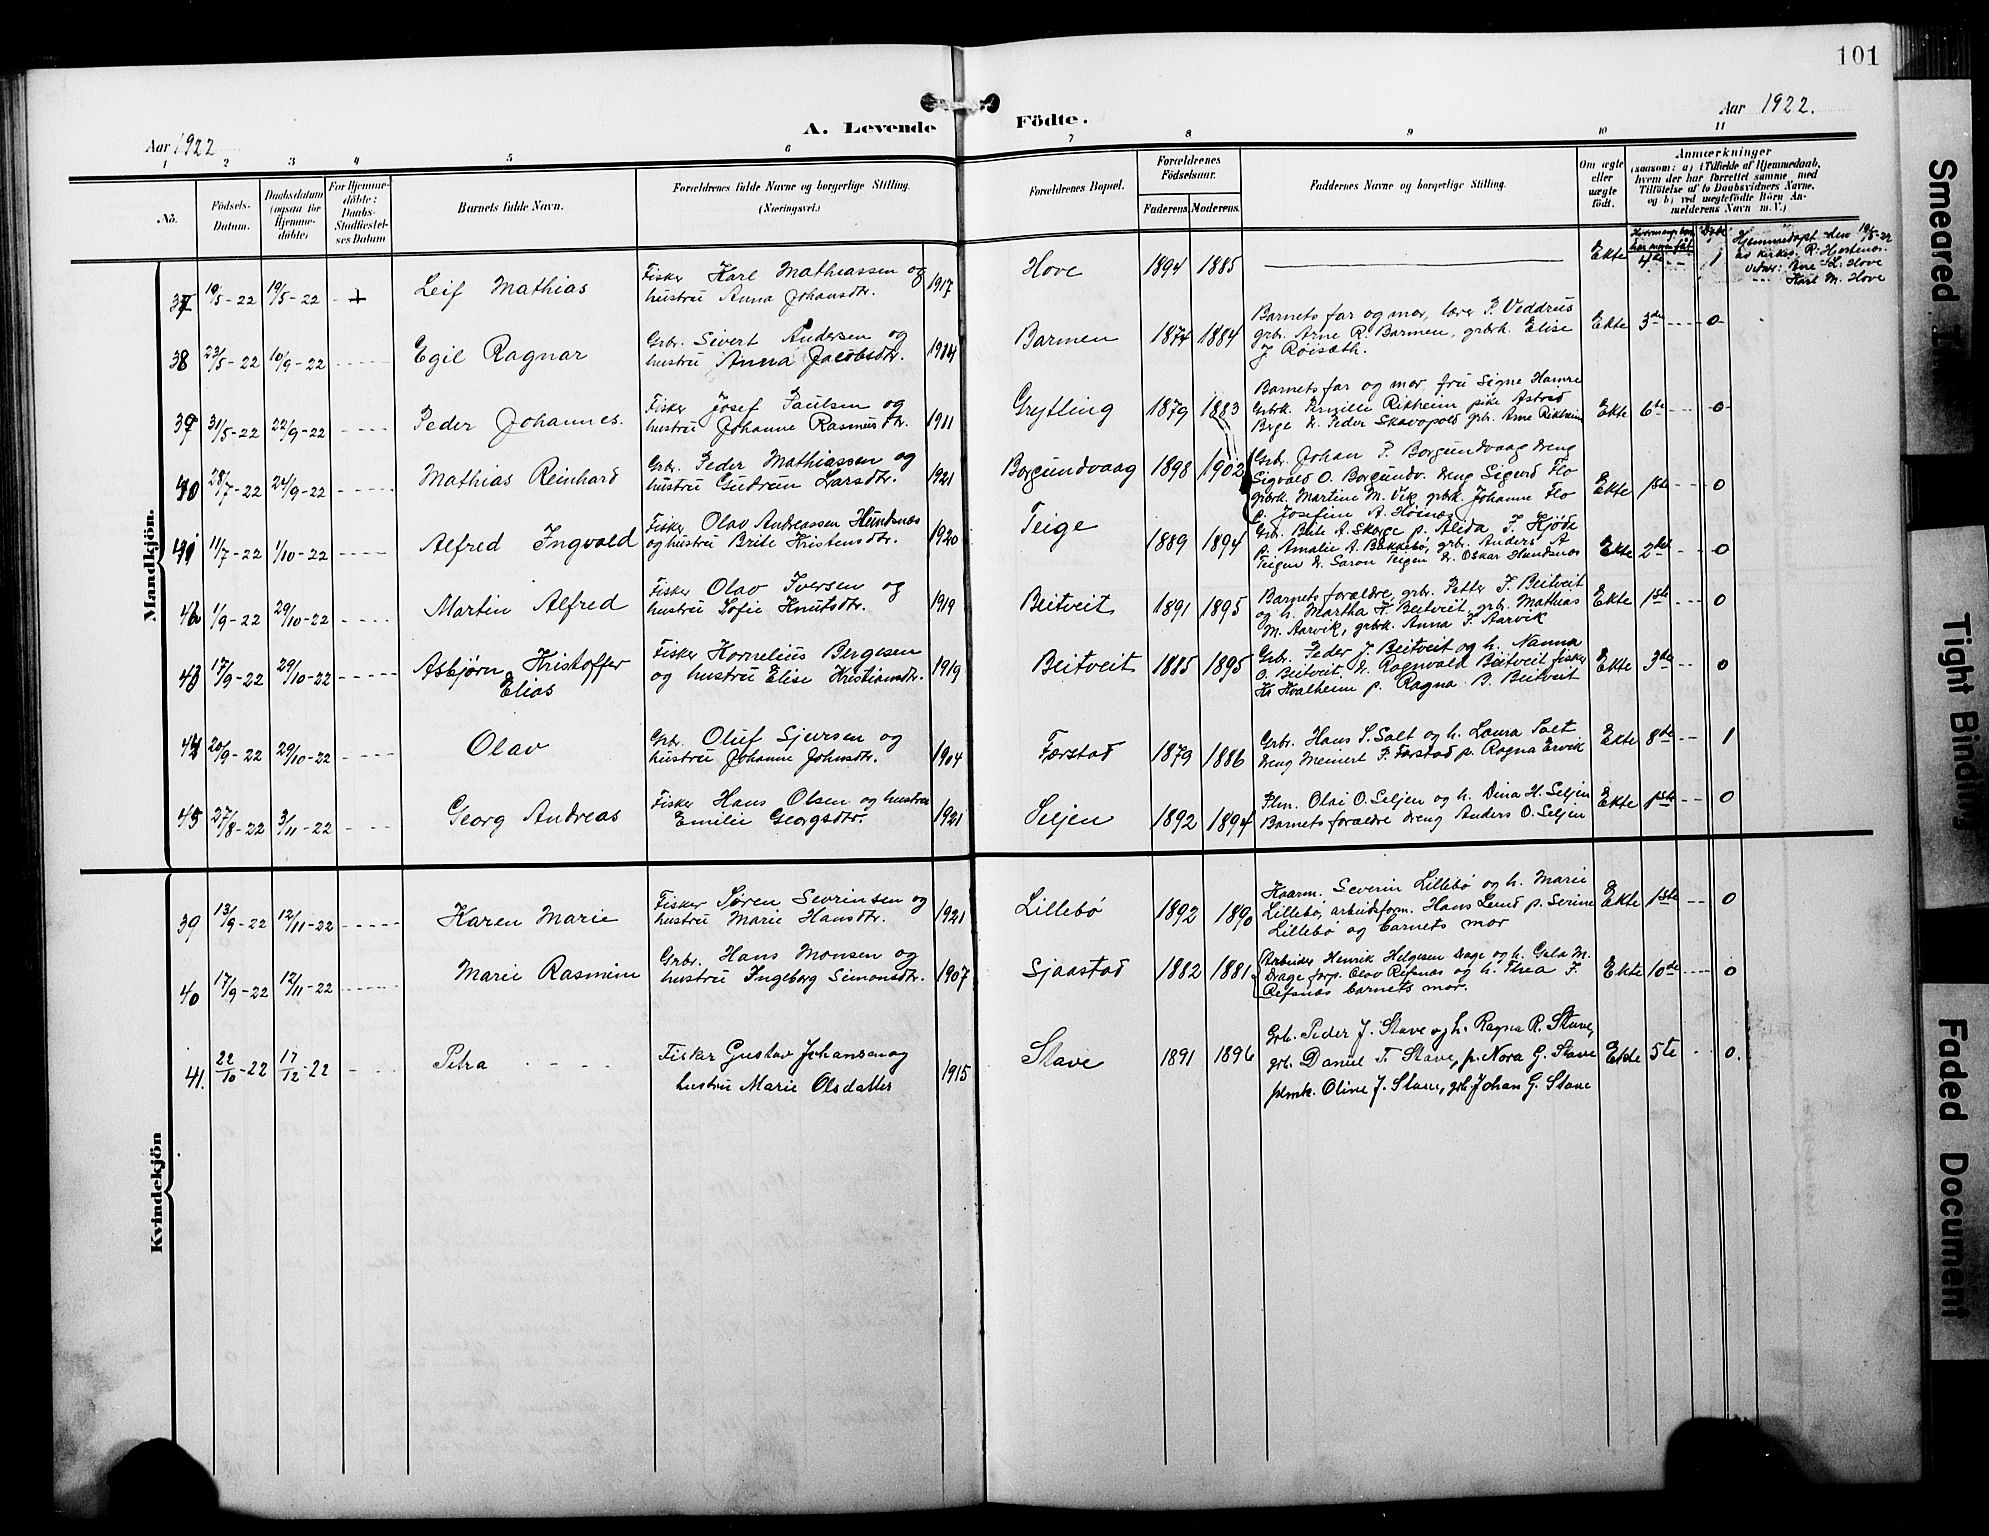 101
Aar 1922
A. Levende Födte.
Aar 1922.
1 2 3 4 5 6 7 8 9 10 11
No.
Födsels-
Datum.
Daabsdatum
(ogsaa for
Hjemme-
döbte)
For Hjemme-
döbte:
Daabs-
Stadfæstel-
ses Datum
Barnets fulde Navn.
Forældrenes fulde Navne og borgerlige Stilling.
(Næringsvei.)
Forældrenes Bopæl.
Forældrenes
Födselsaar.
Faderens. Moderens.
Faddernes Navne og borgerlige Stilling.
Om ægte
eller
uægte
födt.
Anmærkninger
(saasom: a) i Tilfælde af Hjemmedaab,
hvem der har forrettet samme, med
Tilföielse af to Daabsvidners Navne,
og b) ved uægtefödte Börn An-
melderens Navn m. V.)
Mandkjön.
37 19/5-22 19/5-22 Leif Mathias
Fisker Karl Mathiassen og
hustru Anna Johansdtr. 1917
Hove 1894 1885 Ekte 4de 1
Hjemmedøpt den 19/5-22
av kirkes. R. Hjertenes
Karl M. Hove
38 23/5-22 10/9-22 Egil Ragnar
Grbr. Sivert Andersen og
hustru Anna Jacobsdtr. 1914
Barmen 1874 1884
Barnets far og mor, lærer P. Veddrus
grbr. Arne R. Barmen, grbrk. Elise
J. Røisæth.
Ekte 3de 0
39 31/5-22 22/9-22 Peder Johannes.
Fisker Josef Paulsen og
hustru Johanne Rasmusdtr. 1911
Grytting 1879 1883
Barnets far og mor, fru Signe Hamre
Grbrk. Pernille Rikheim pike Astrid
Berge d. Peder Skavopold grbr. Arne Rikheim
Ekte 6te 0
40 28/7-22 24/9-22 Mathias Reinhard
Grbr. Peder Mathiassen og
hustru Gudrun Larsdtr. 1921
Borgundvaag 1898 1902
Grbr. Johan P. Borgundvaag dreng
Sigvald O. Borgundv. dreng Sigurd Flo
grbrk. Martine M. Vik grbrk. Johanne Flo
p. Josefine A. Høines
Ekte 1ste 0
41 11/7-22 1/10-22 Alfred Ingvald
Fisker Olav Andreassen Hundsnes
og hustru Brite Kristensdtr. 1920
Teige 1889 1894
Grb. Brite A. Skorge p. Alida J. Kjøde
p. Amalie A. Bakkebø, grbr. Anders A
Teigen d. Saron Teigen d. Oskar Hundsnes
Ekte 2det 0
42 1/9-22 29/10-22 Martin Alfred
Fisker Olav Iversen og
hustru Sofie Knutsdtr. 1919
Beitveit 1891 1895
Barnets foraldre, grbr. Petter J. Beitveit
og h. Martha F. Beitveit, grbr. Mathias
M. Aarvik, grbrk. Anna J. Aarvik
Ekte 1ste 0
43 17/9-22 29/10-22 Asbjørn Kristoffer
Elias
Fisker Kornelius Bergesen
og hustru Elise Kristiansdtr. 1919
Beitveit 1885 1895
Grbr. Peder J. Beitveit og h. Nanna
O. Beitveit, d. Ragnvald Beitveit fisker
Hs Hvalheim p. Ragna B. Beitveit
Ekte 3de 0
44 20/9-22 29/10-22 Olav
Grbr. Oluf Sjursen og
hustru Johanne Johnsdtr. 1904
Færstad 1879 1886
Grbr. Hans S. Salt og h. Laura Salt
dreng Meinert P. Færstad p. Ragna Ervik
Ekte 8de 1
45 27/8-22 3/11-22 Georg Andreas
Fisker Hans Olsen og hustru
Emilie Georgsdtr. 1921
Seljen 1892 1894
Plm. Olai O. Seljen og h. Dina H. Seljen
Barnets foraldre dreng Anders O. Seljen
Ekte 1ste 0
Kvindekjön
39 13/9-22 12/11-22 Karen Marie
Fisker Søren Sevrinsen og
hustru Marie Hansdtr. 1921
Lillebø 1892 1890
Kaarm. Severin Lillebø og h. Marie
Lillebø, arbeidsform. Hans Lund p. Serine
Lillebø og barnets mor
Ekte 1ste 0
40 17/9-22 12/11-22 Marie Rasmine
Grbr. Hans Monsen og
hustru Ingeborg Simonsdtr. 1907
Sjaastad 1882 1881
Arbeider Henrik Helgesen Drage og h. Gala M.
Drage forp. Olav Refsnes og h. Thea F.
Refsnes barnets mor.
Ekte 10de 0
41. 22/10-22 17/12-22 Petra
Fisker Gustav Johansen og
hustru Marie Olsdatter 1915
Stave 1891 1896
Grb. Peder J. Stave og h. Ragna R. Stave,
grb. Daniel T. Stave, p. Nora G. Stave
plmk. Oline J. Stave, grb. Johan G. Stave
Ekte 5te 0.
Smeared
Tight Binding
Faded Document